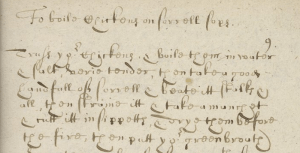 To boile Chickens on sorrell sops.
9
Trust yor Chickens, & boile them in water
& salt, verie tender, then take a good
handfull of sorrell & beate itt stalks &
all, then straine itt & take a manchet
& cutt itt in sippetts & drye them before
the fire, then putt yor green broath